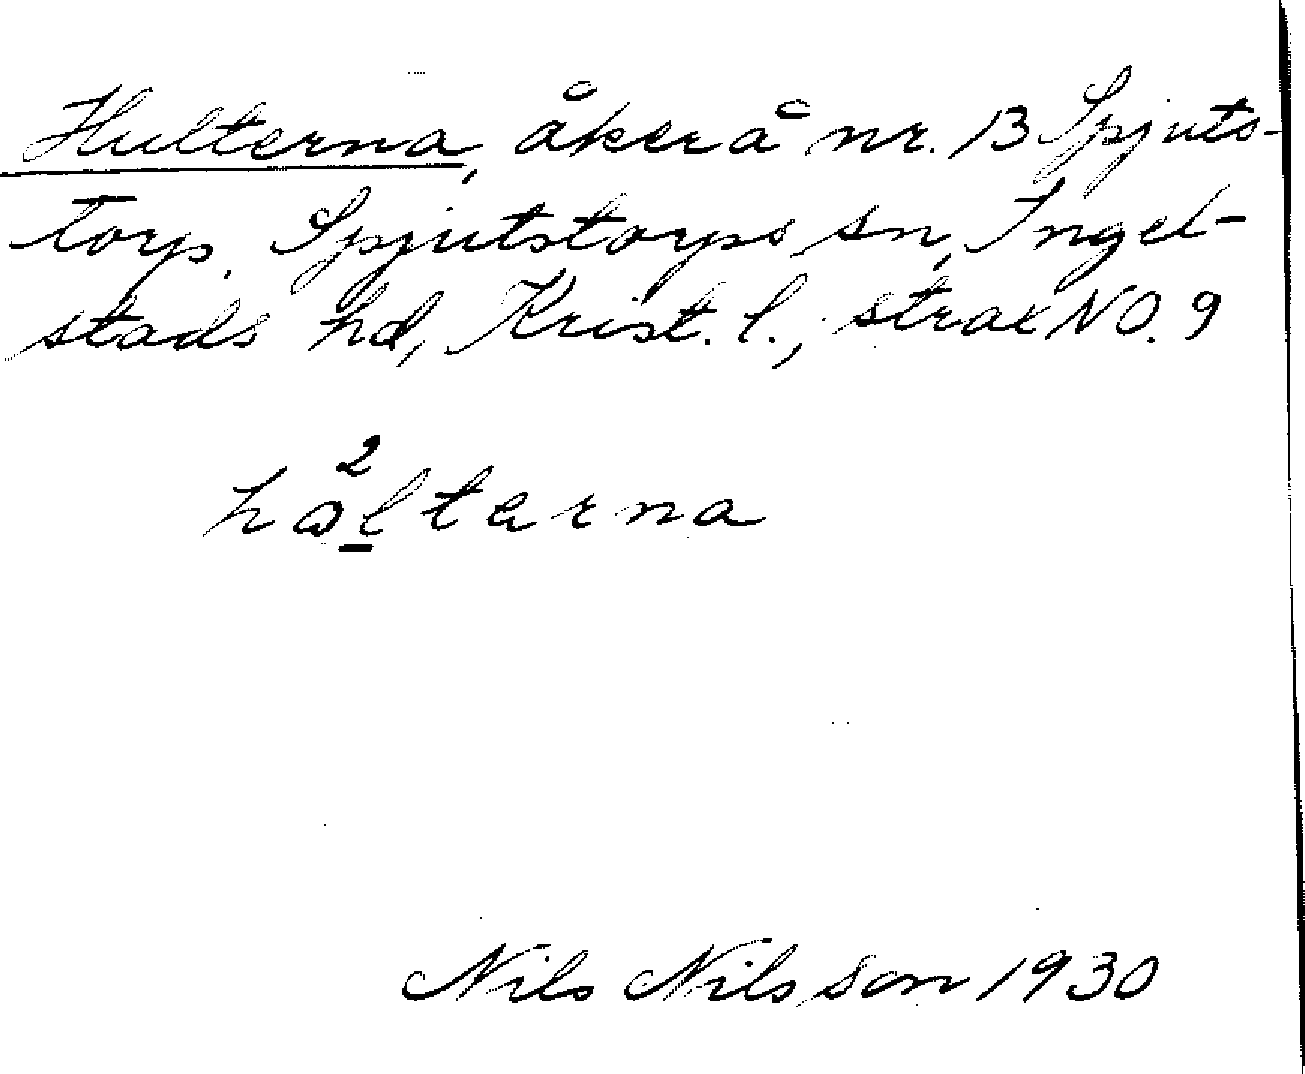 Hulterna, åker å nr. 13 Spjuts-
torp, Spjutstorps sn, Ingel-
stads hd, Krist. l., strax NO. 9
hålterna
Nils Nilsson 1930